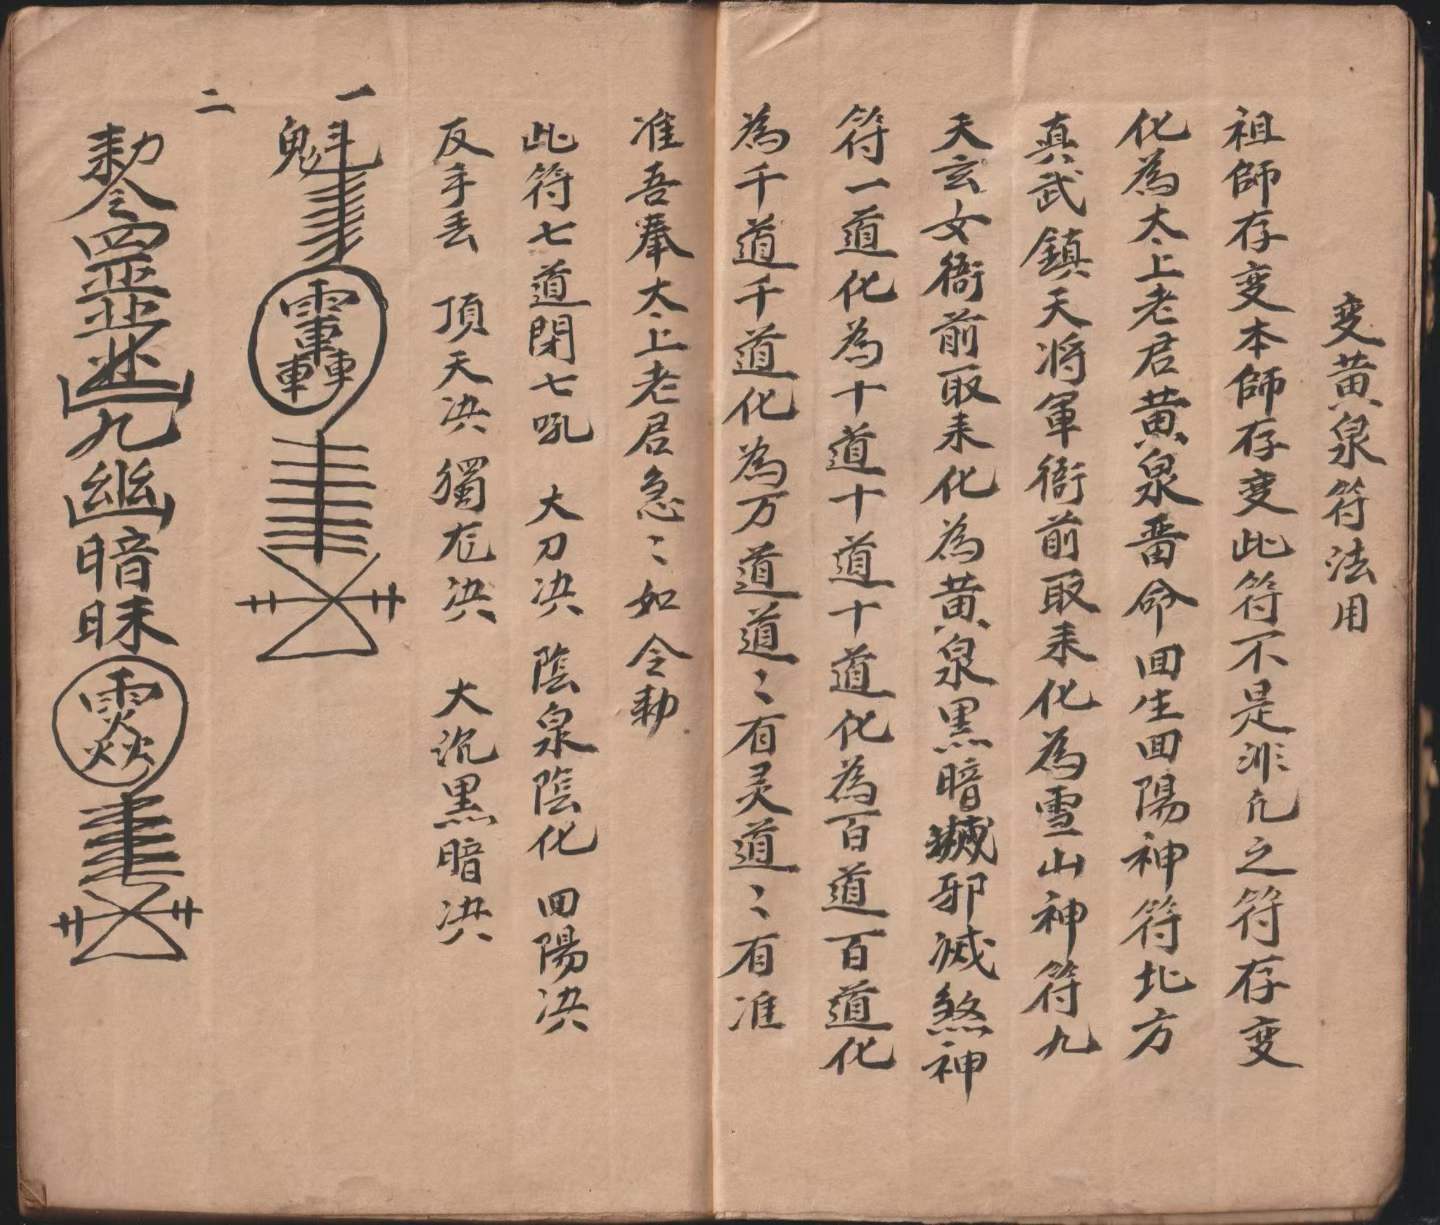 变黄泉符法用
祖師存变本師存变此符不是非凡之符存变
化為太上老君黄泉番命回生回陽神符北方
真武鎮天将軍衙前取来化為雪山神符九
天玄女衙前取来化為黄泉黑暗滅邪滅煞神
符一道化為十道十道十道化為百道百道化
為千道千道化為万道道〻有灵道〻有准
准吾奉太上老君急〻如令勅
此符七道閉七吼 大刀决 陰泉陰化 回陽决
反手丢 頂天决 獨尨决 大沉黑暗决
一
魁
二
勅令
九幽暗昧